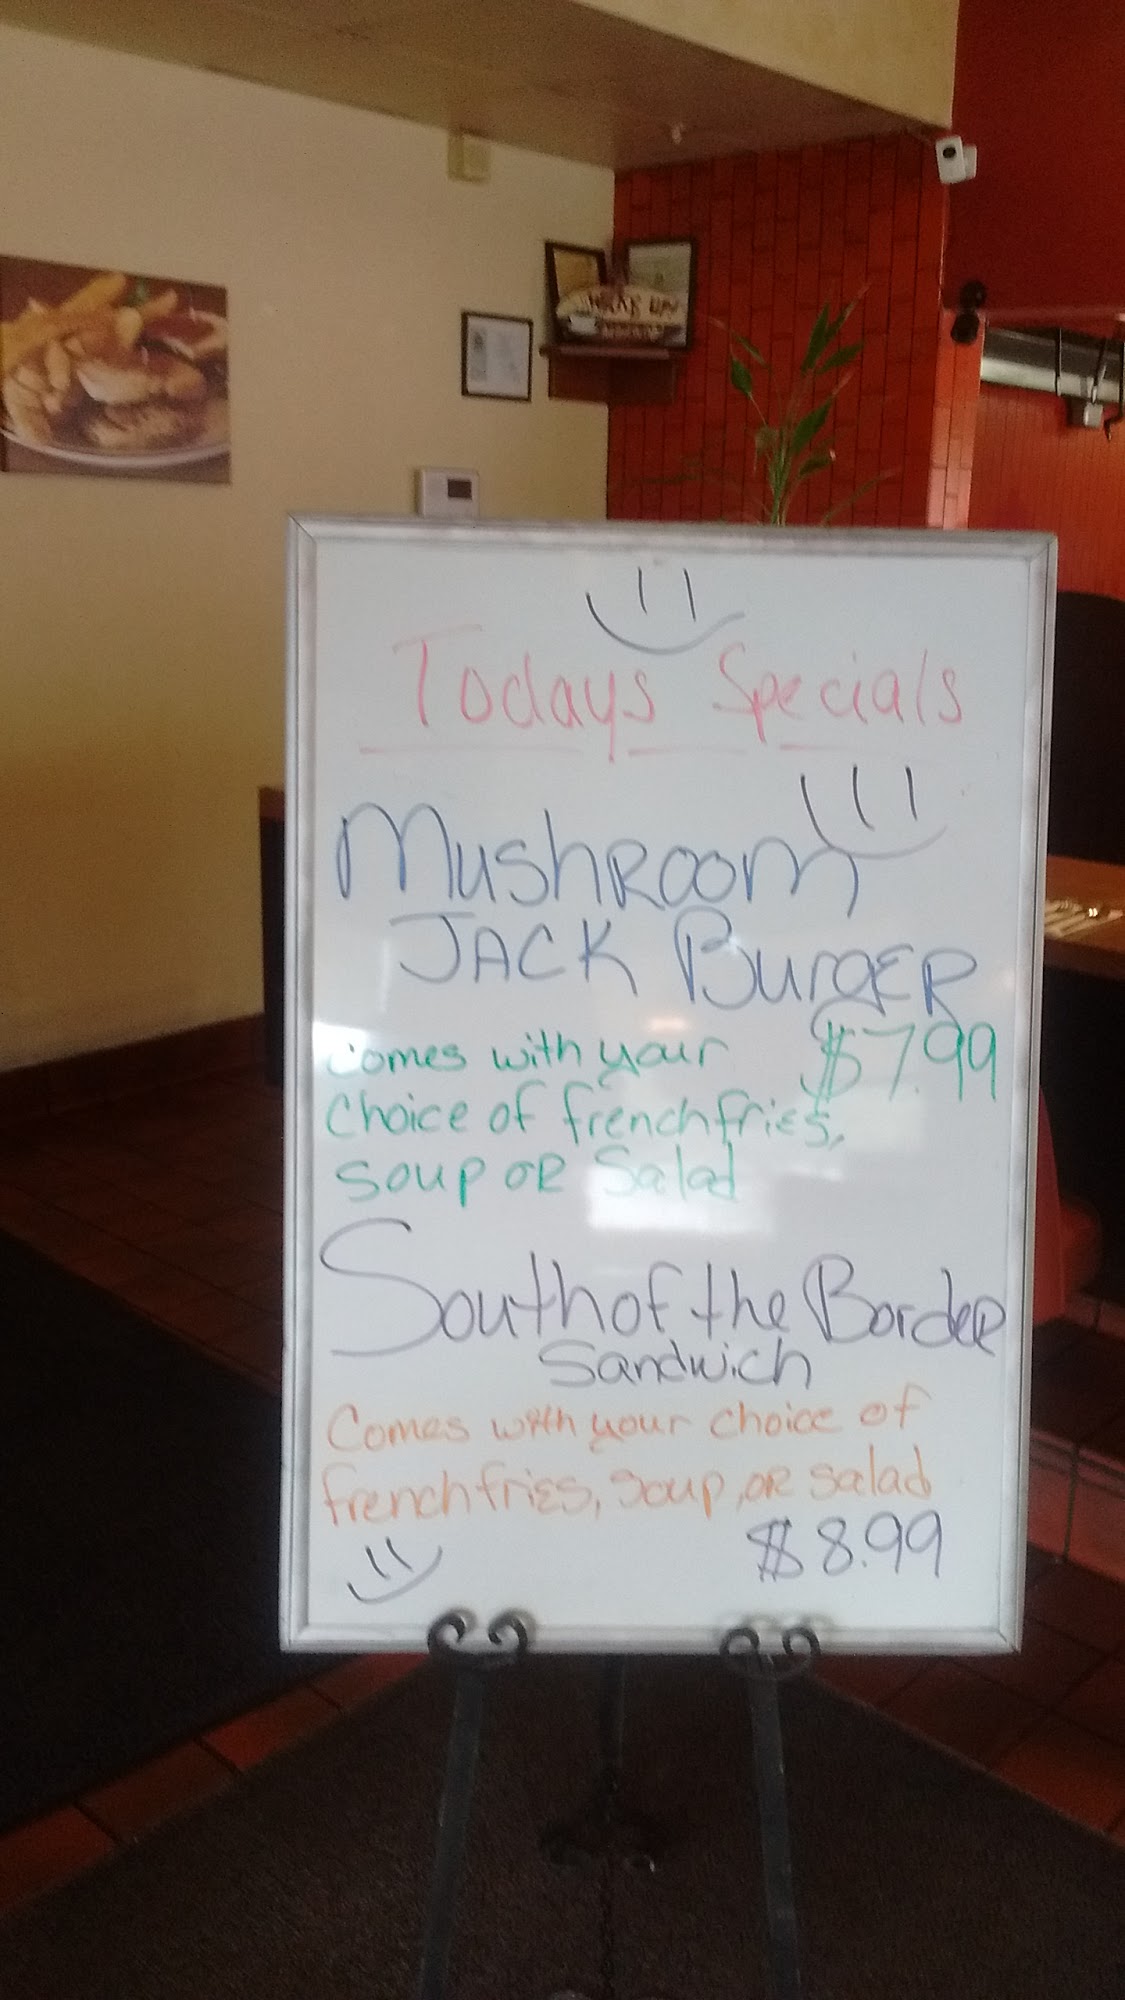 Todays Specials
Mushroom
Jack Burger
comes with your $7.99
choice of french fries,
soup or salad
South of the Border
Sandwich
Comes with your choice of
french fries, soup, or salad
$8.99